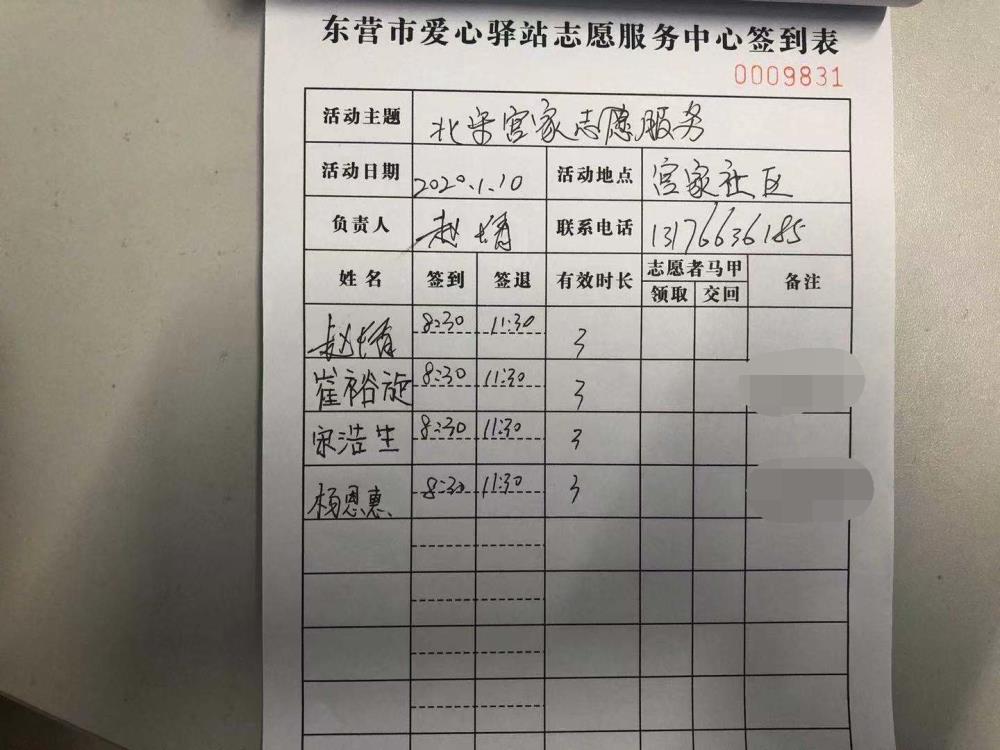 东营市爱心驿站志愿服务中心签到表
0009831
活动主题 北宋宫家志愿服务
活动日期 2020.1.10 活动地点 宫家社区
负责人 赵婧 联系电话 13176636185
姓名 签到 签退 有效时长 志愿者马甲 备注
领取 交回
赵婧 8:30 11:30 3
崔裕旋 8:30 11:30 3
宋浩生 8:30 11:30 3
杨恩惠 8:30 11:30 3